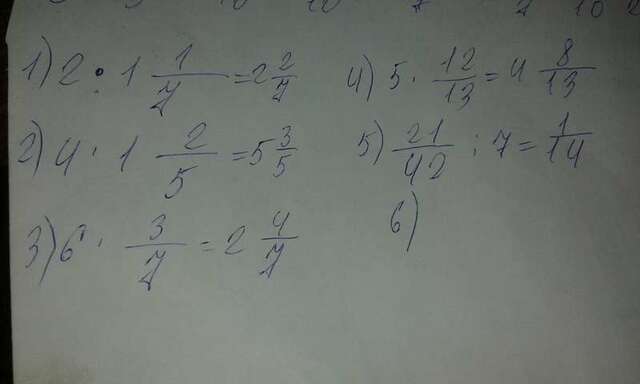 1) 2 · 1 1/7 = 2 2/7
2) 4 · 1 2/5 = 5 3/5
3) 6 · 3/7 = 2 4/7
4) 5 · 12/13 = 4 8/13
5) 21/42 : 7 = 1/14
6)